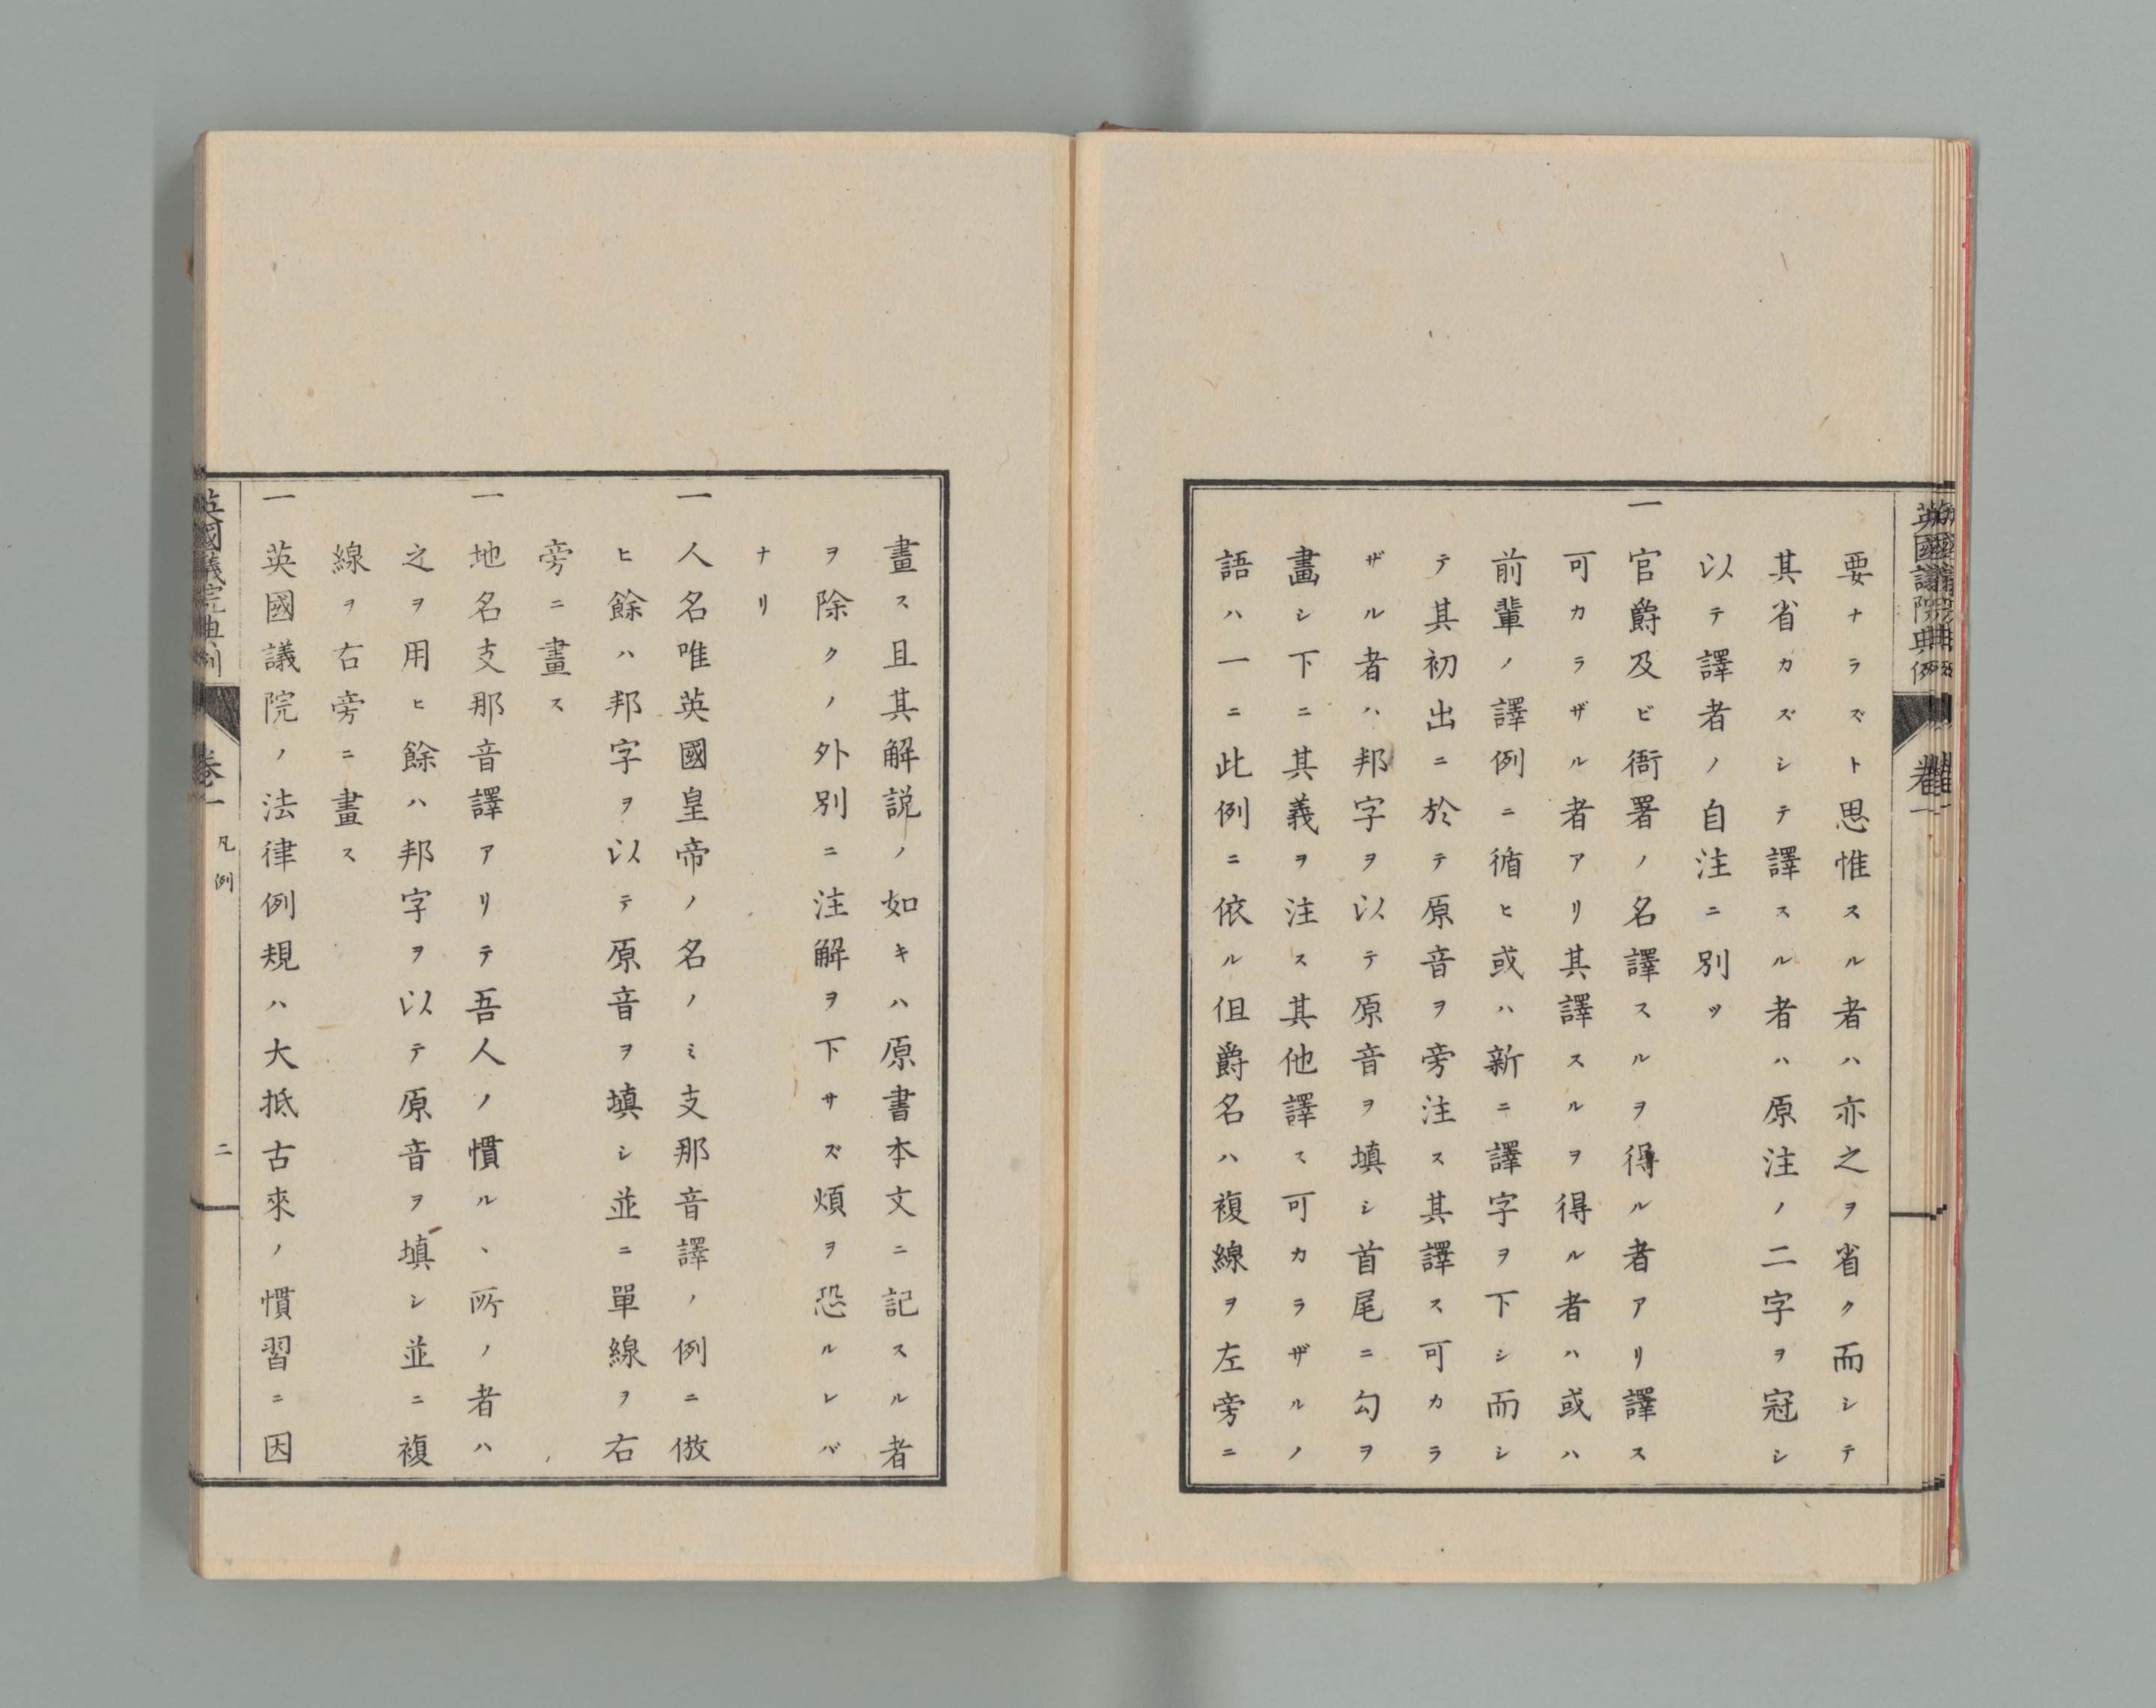 英國議院典例 卷一
要ナラズト思惟スル者ハ亦之ヲ省ク而シテ
其省カズシテ譯スル者ハ原注ノ二字ヲ冠シ
以テ譯者ノ自注ニ別ツ
一官爵及ビ衙署ノ名譯スルヲ得ル者アリ譯ス
可カラザル者アリ其譯スルヲ得ル者ハ或ハ
前輩ノ譯例ニ循ヒ或ハ新ニ譯字ヲ下シ而シ
テ其初出ニ於テ原音ヲ旁注ス其譯ス可カラ
ザル者ハ邦字ヲ以テ原音ヲ填シ首尾ニ勾ヲ
畫シ下ニ其義ヲ注ス其他譯ス可カラザルノ
語ハ一ニ此例ニ依ル但爵名ハ複線ヲ左旁ニ
畫ス且其解説ノ如キハ原書本文ニ記スル者
ヲ除クノ外別ニ注解ヲ下サズ煩ヲ恐ルレバ
ナリ
一人名唯英國皇帝ノ名ノミ支那音譯ノ例ニ倣
ヒ餘ハ邦字ヲ以テ原音ヲ填シ並ニ單線ヲ右
旁ニ畫ス
一地名支那音譯アリテ吾人ノ慣ルヽ所ノ者ハ
之ヲ用ヒ餘ハ邦字ヲ以テ原音ヲ填シ並ニ複
線ヲ右旁ニ畫ス
一英國議院ノ法律例規ハ大抵古來ノ慣習ニ因
英國議院典例 卷一 凡例 二